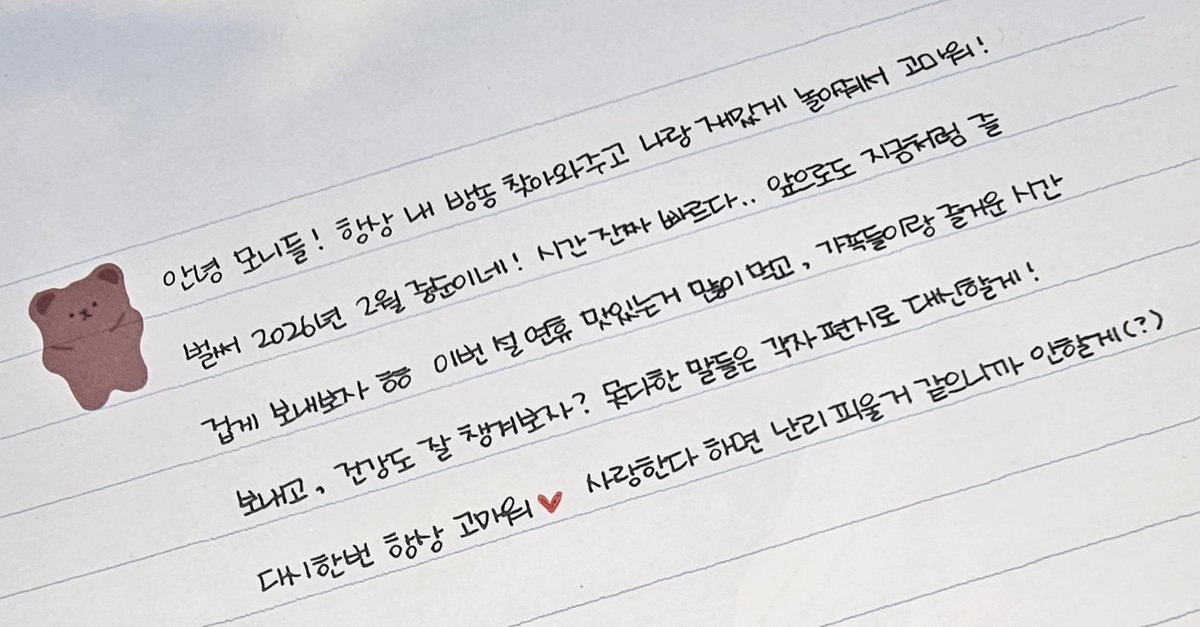 안녕 모니들! 항상 내 방송 찾아와주고 나랑 재밌게 놀아줘서 고마워!
벌써 2026년 2월 중순이네! 시간 진짜 빠르다.. 앞으로도 지금처럼 즐
겁게 보내보자 ㅎㅎ 이번 설 연휴 맛있는거 많이 먹고, 가족들이랑 즐거운 시간
보내고, 건강도 잘 챙겨보자? 못다한 말들은 각자 편지로 대신할게!
다시한번 항상 고마워♥ 사랑한다 하면 난리 피울거 같으니까 안할게(?)